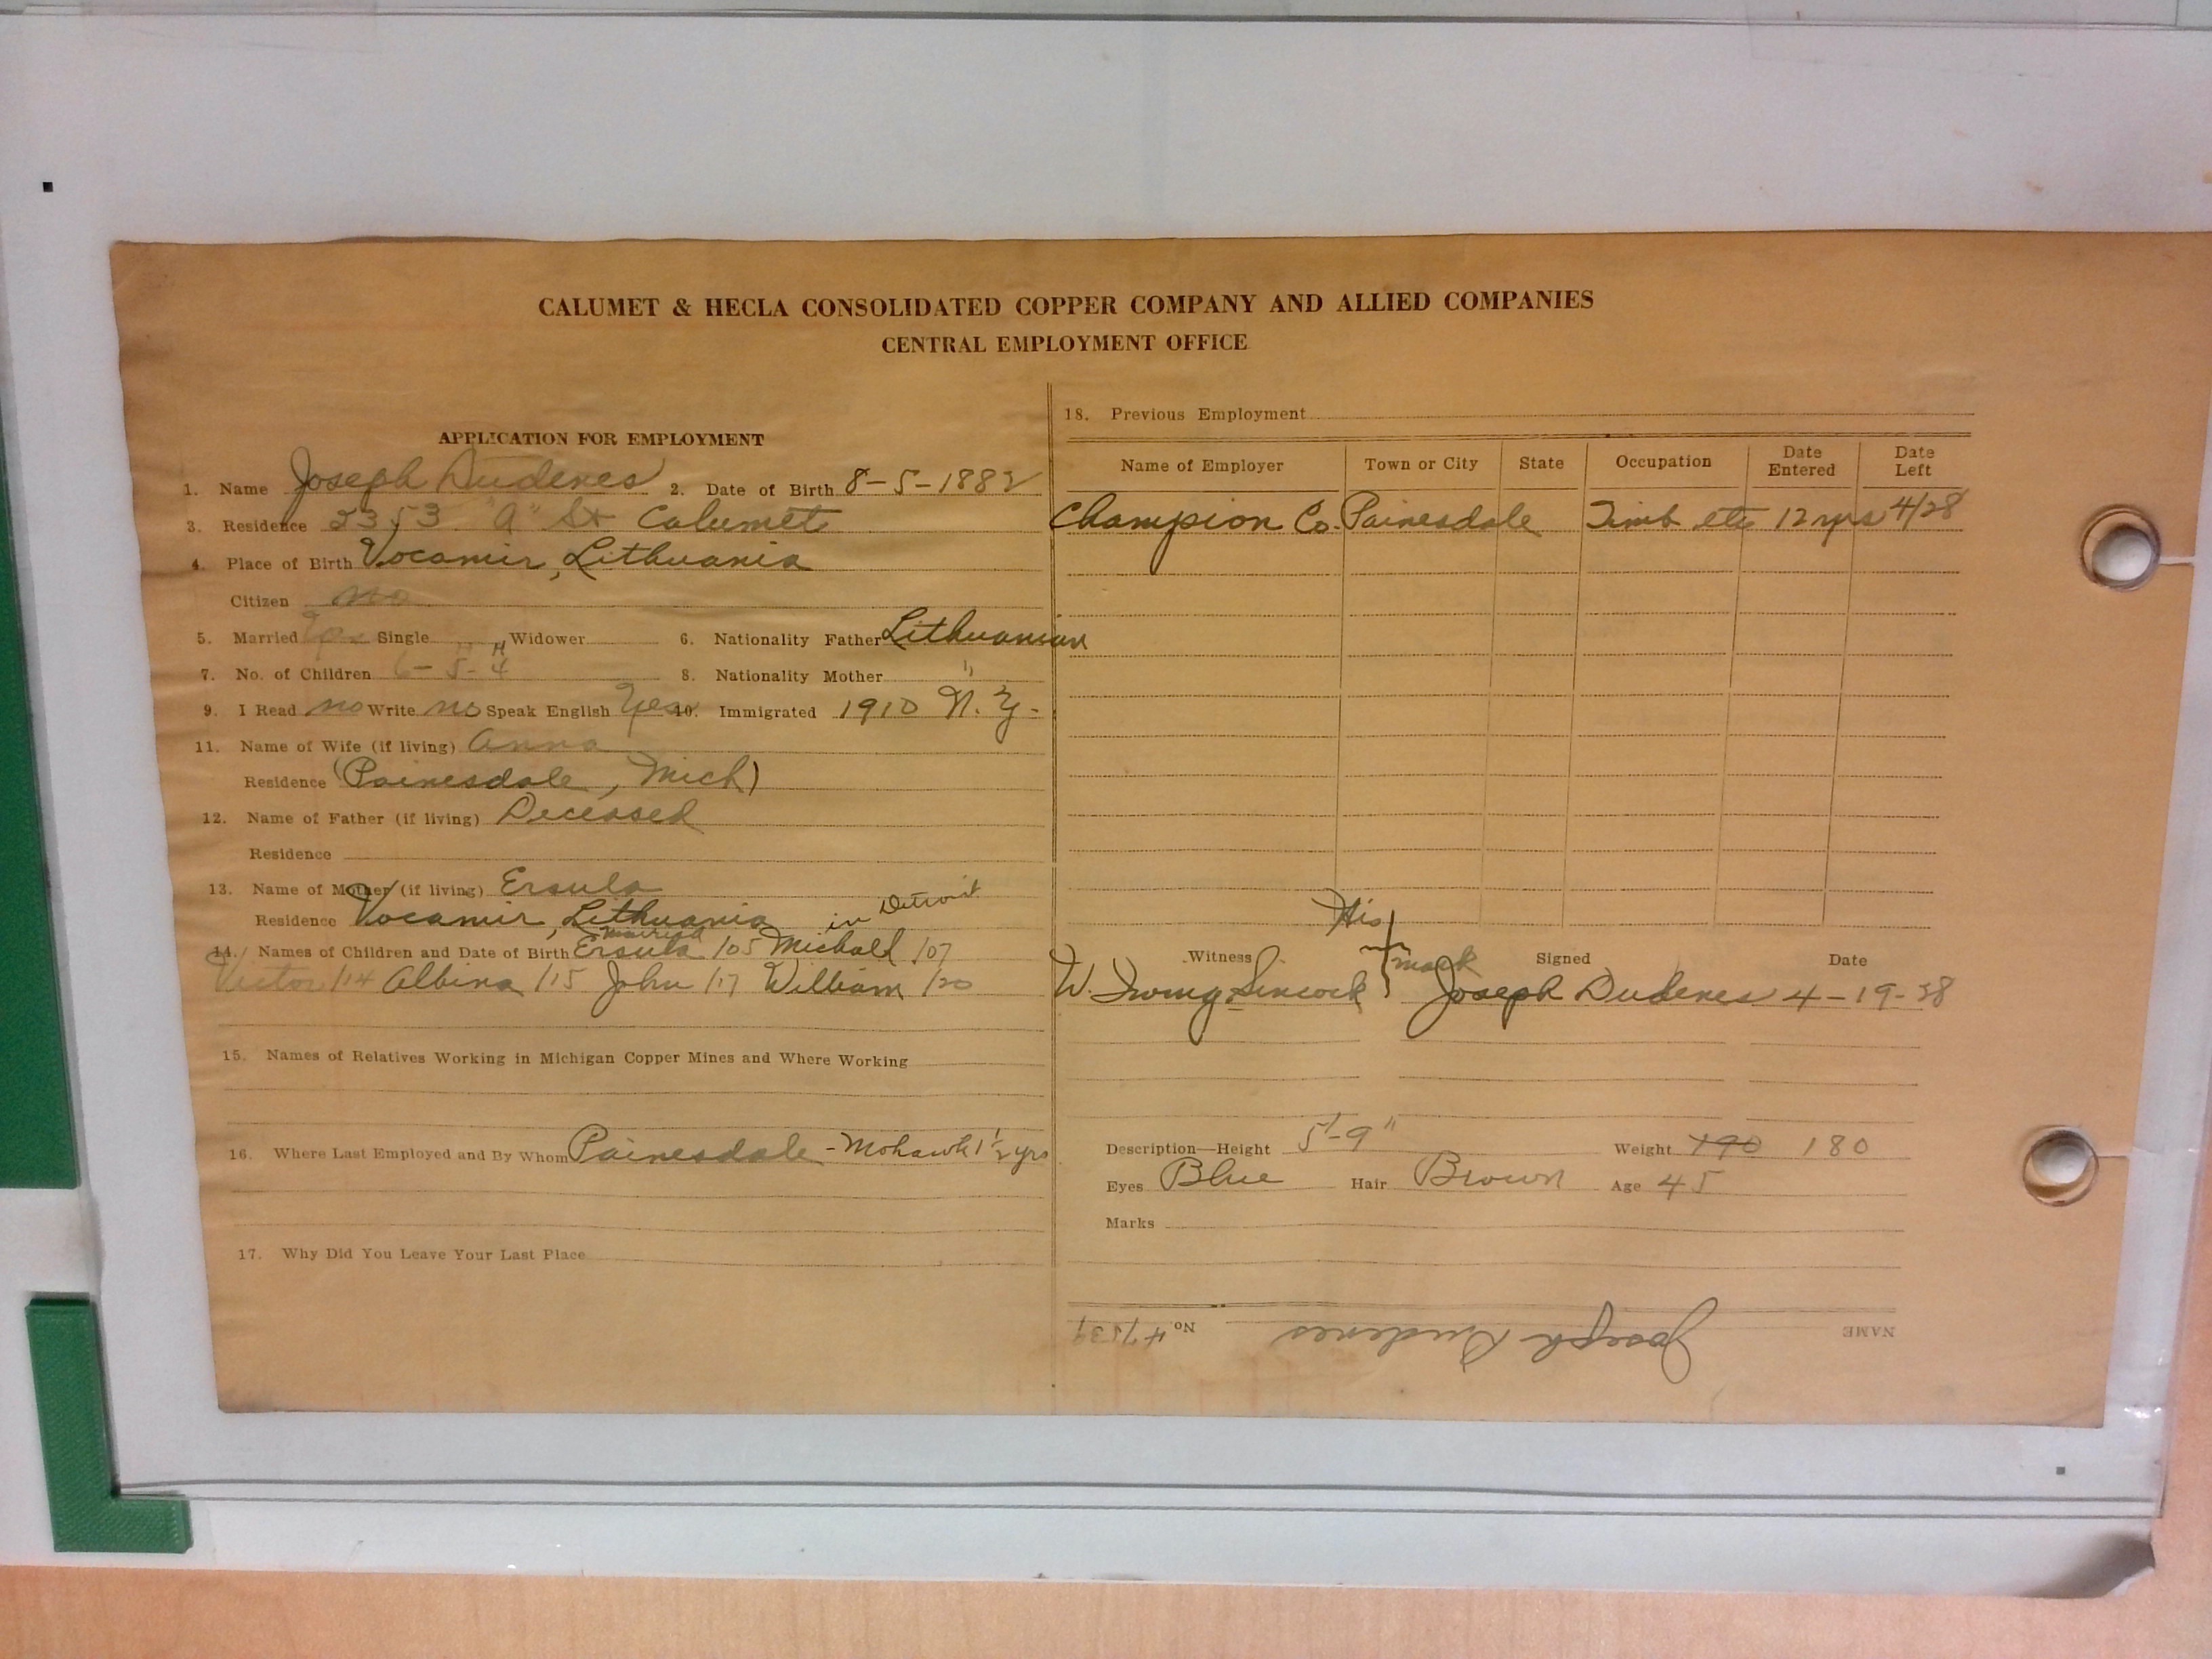 CALUMET & HECLA CONSOLIDATED COPPER COMPANY AND ALLIED COMPANIES
CENTRAL EMPLOYMENT OFFICE
APPLICATION FOR EMPLOYMENT
1. Name Joseph Dudenes 2. Date of Birth 8-5-1882
3. Residence 2353 "A" St Calumet
4. Place of Birth Vocamir, Lithuania
Citizen no
5. Married Yes Single Widower 6. Nationality Father Lithuanian
7. No. of Children 6- 5- 4 8. Nationality Mother "
9. I Read no Write no Speak English Yes 10. Immigrated 1910 N.Y.
11. Name of Wife (if living) Anna
Residence (Painesdale, Mich)
12. Name of Father (if living) Deceased
Residence
13. Name of Mother (if living) Ersula
Residence Vocamir, Lithuania in Detroit
married
14. Names of Children and Date of Birth Ersula /05 Michall /07
Victor /14 Albina /15 John /17 William /20
15. Names of Relatives Working in Michigan Copper Mines and Where Working
16. Where Last Employed and By Whom Painesdale - Mohawk 1 1/2 yrs
17. Why Did You Leave Your Last Place
18. Previous Employment
Name of Employer Town or City State Occupation Date Entered Date Left
Champion Co. Painesdale Timb etc 12 yrs 4/28
His
Witness mark Signed Date
W. Irwing Sincock Joseph Dudenes 4-19-28
Description—Height 5'-9" Weight 190 180
Eyes Blue Hair Brown Age 45
Marks
NAME Joseph Dudenes No. 47539